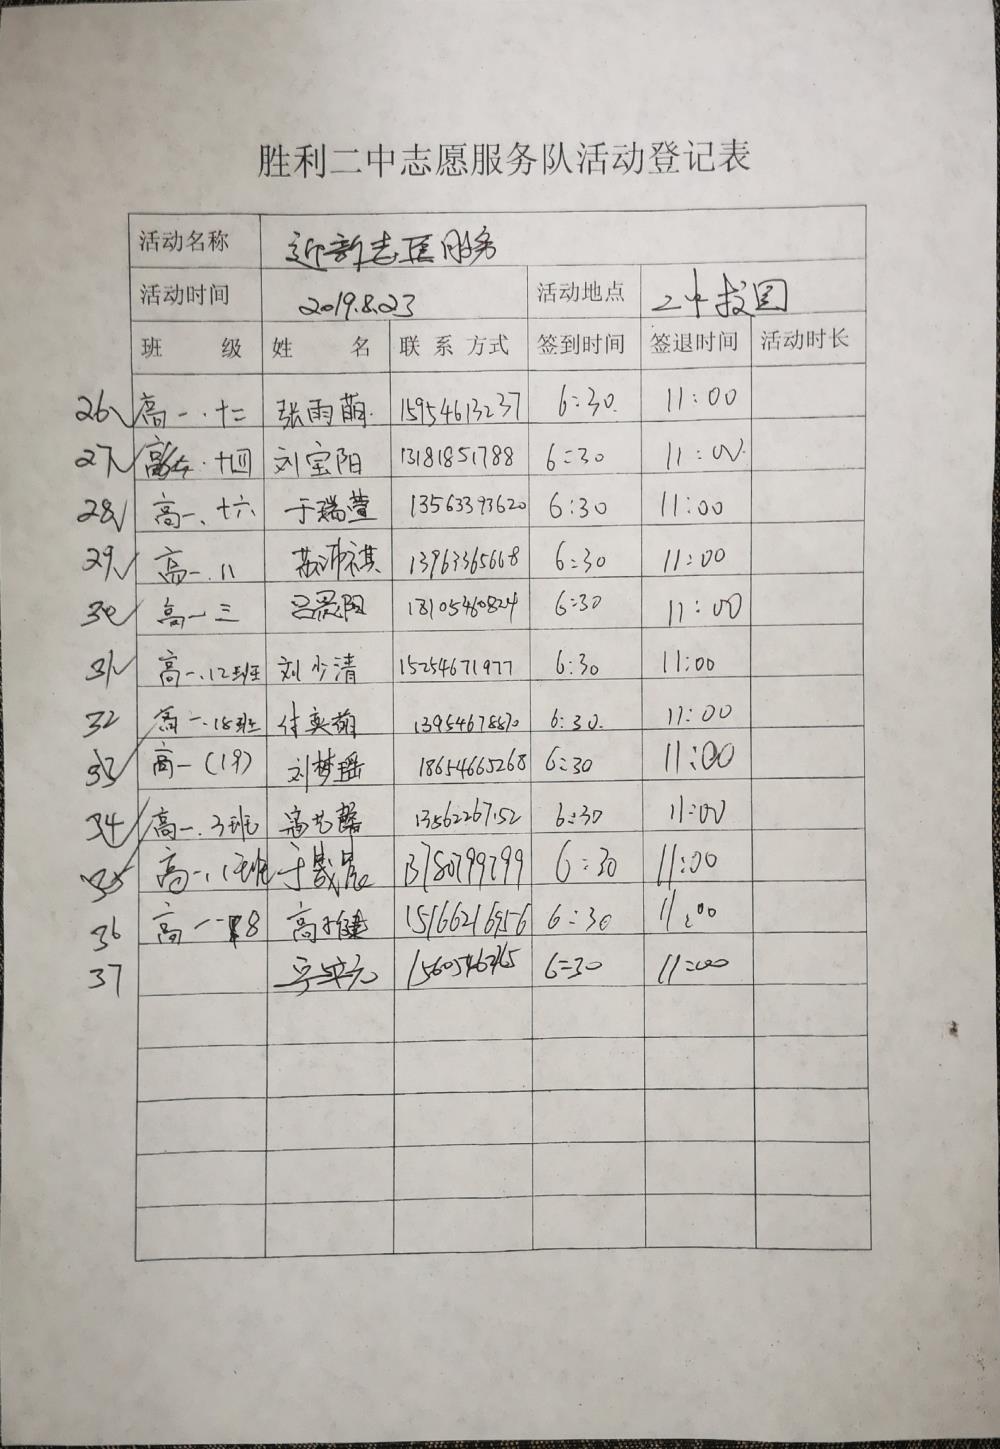 胜利二中志愿服务队活动登记表
活动名称 迎新志愿服务
活动时间 2019.8.23 活动地点 二中校园
班 级 姓 名 联 系 方式 签到时间 签退时间 活动时长
26 高一.十二 张雨萌 15954613237 6:30 11:00
27 十四 刘宝阳 13181851788 6:30 11:00
28 高一.十六 于瑞萱 13563393620 6:30 11:00
29 高一.八 苏沛祺 13963365668 6:30 11:00
30 高一三 吕晨阳 18105460824 6:30 11:00
31 高一.12班 刘少清 15254671977 6:30 11:00
32 高一.18班 付奕萌 13954678870 6:30 11:00
33 高一(19) 刘梦瑶 18654665268 6:30 11:00
34 高一.3班 6:30 11:00
35 高一 6:30 11:00
36 高一 18 高子健 15166216956 6:30 11:00
37 6:30 11:00